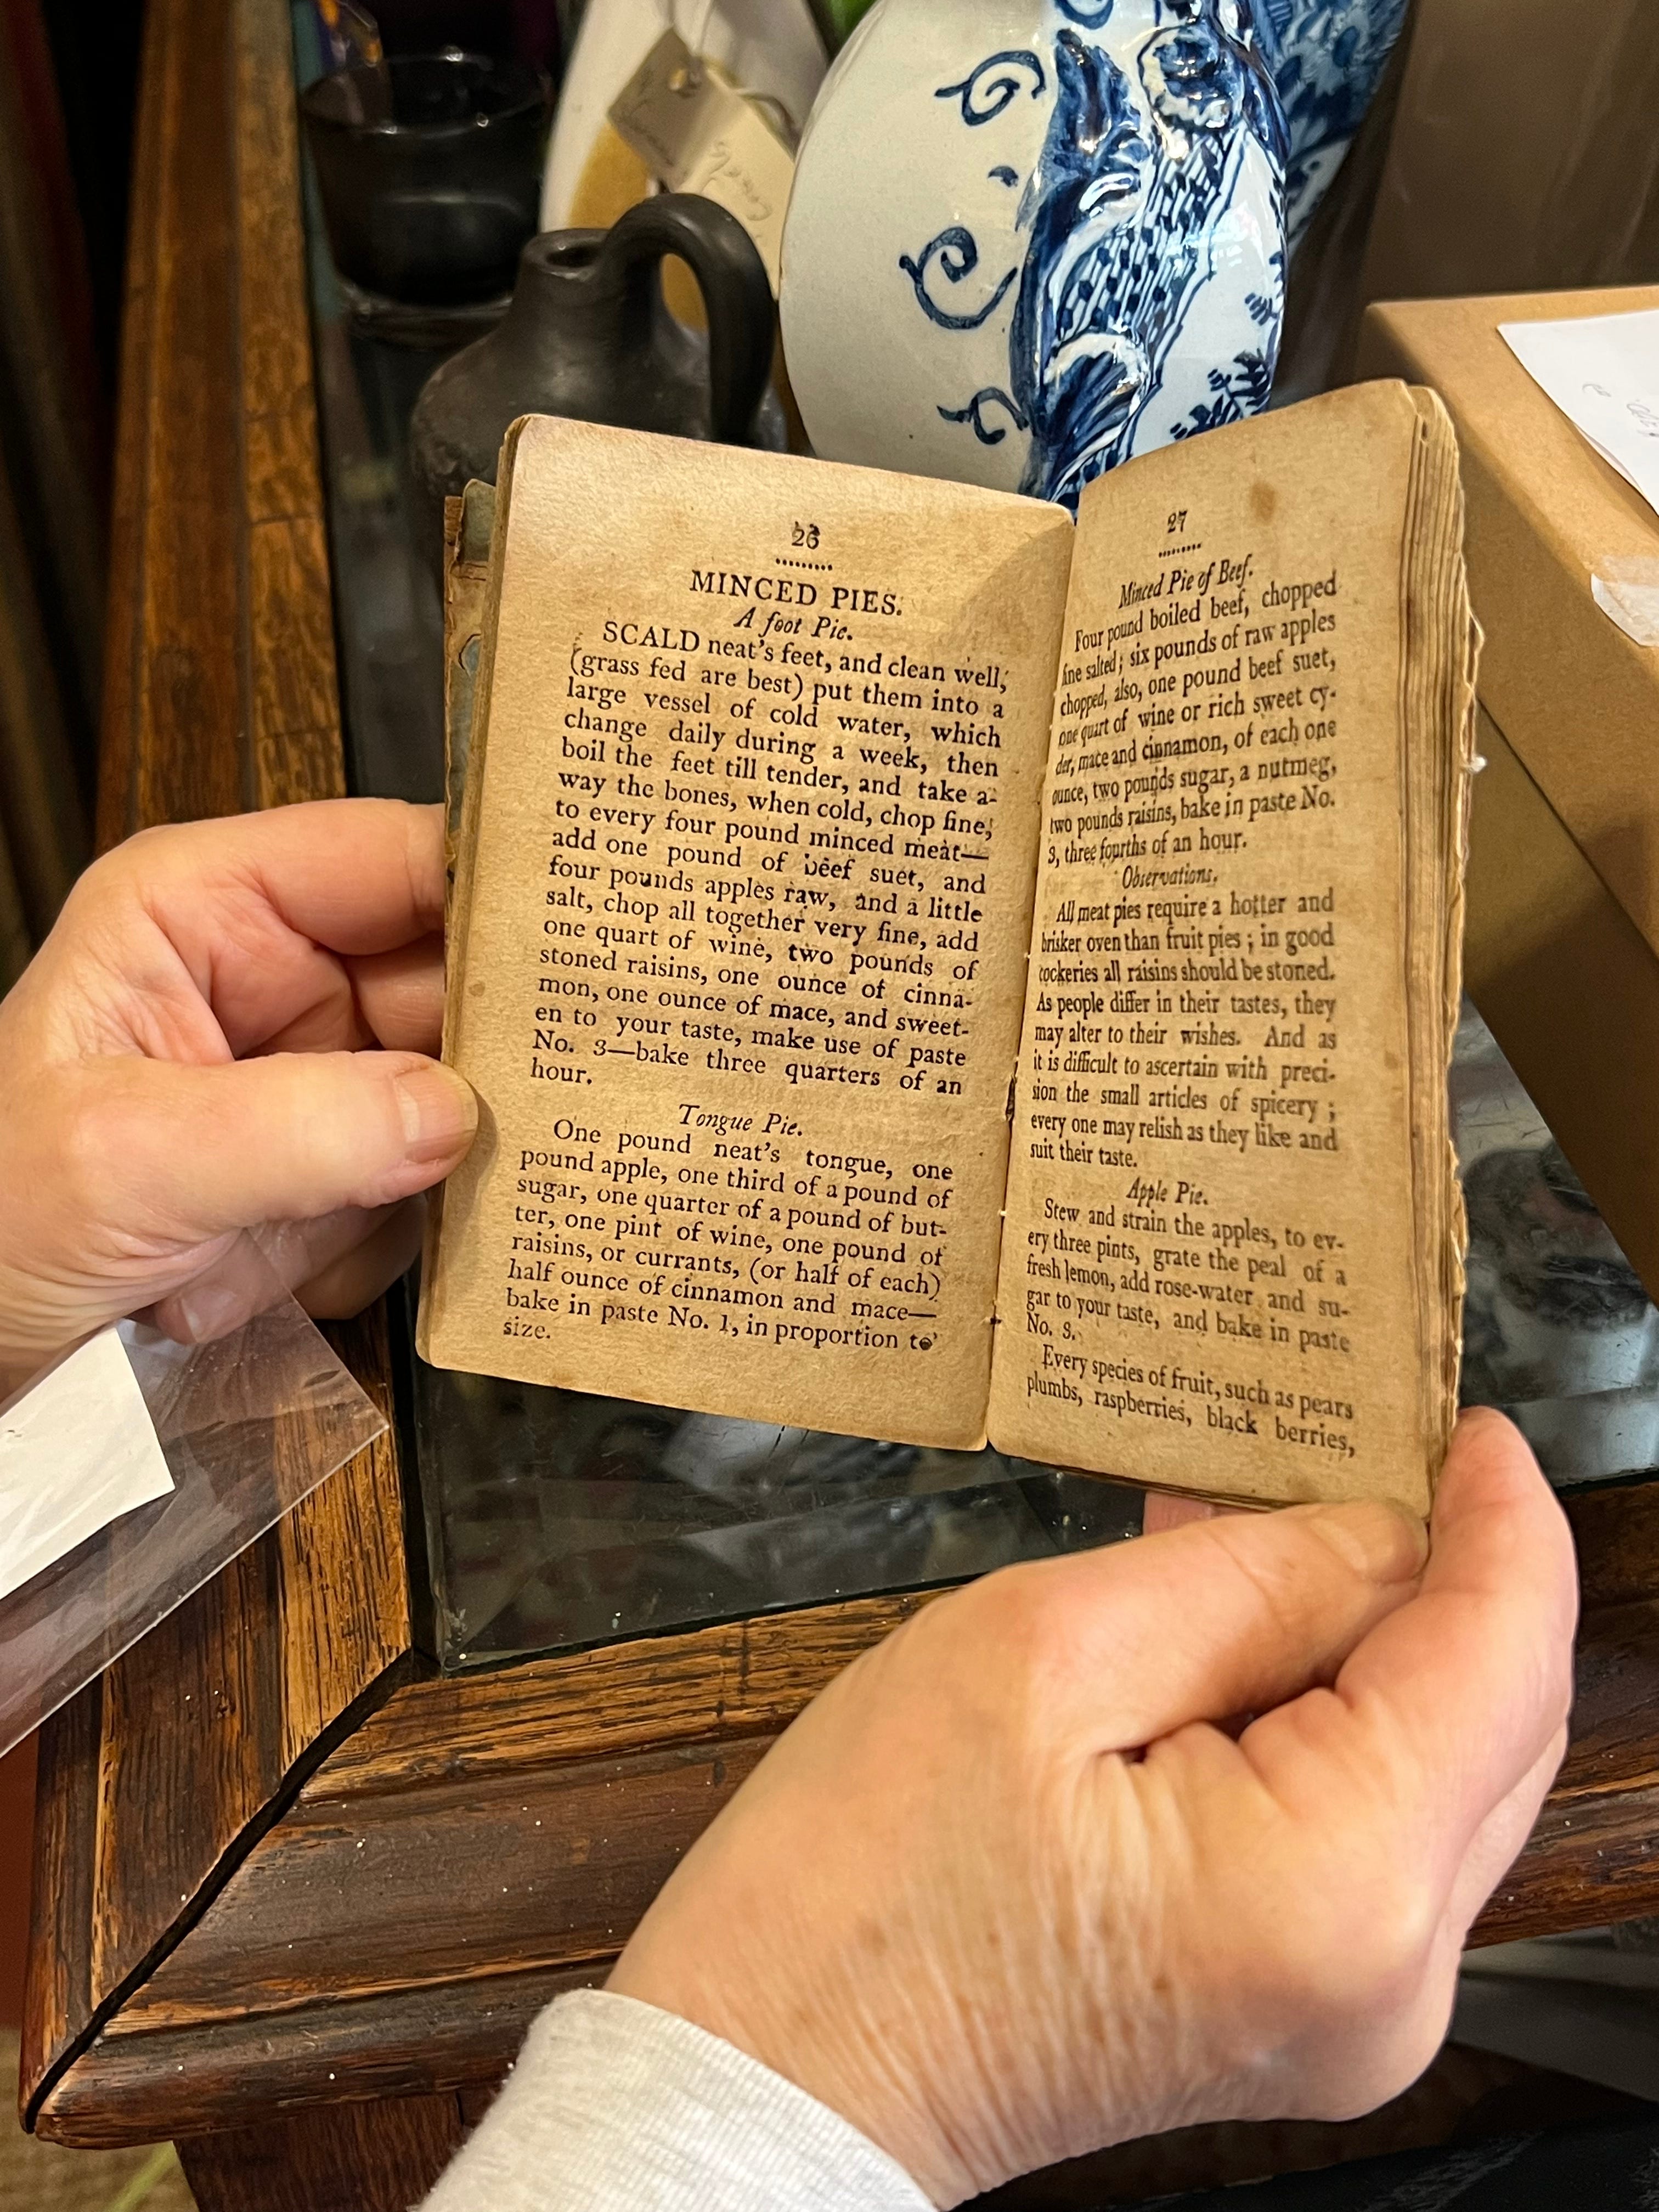 26
MINCED PIES.
A foot Pie.
SCALD neat's feet, and clean well,
(grass fed are best) put them into a
large vessel of cold water, which
change daily during a week, then
boil the feet till tender, and take a-
way the bones, when cold, chop fine,
to every four pound minced meat—
add one pound of beef suet, and
four pounds apples raw, and a little
salt, chop all together very fine, add
one quart of wine, two pounds of
stoned raisins, one ounce of cinna-
mon, one ounce of mace, and sweet-
en to your taste, make use of paste
No. 3—bake three quarters of an
hour.
Tongue Pie.
One pound neat's tongue, one
pound apple, one third of a pound of
sugar, one quarter of a pound of but-
ter, one pint of wine, one pound of
raisins, or currants, (or half of each)
half ounce of cinnamon and mace—
bake in paste No. 1, in proportion to
size.
27
Minced Pie of Beef.
Four pound boiled beef, chopped
fine salted; six pounds of raw apples
chopped, also, one pound beef suet,
one quart of wine or rich sweet cy-
der, mace and cinnamon, of each one
ounce, two pounds sugar, a nutmeg,
two pounds raisins, bake in paste No.
3, three fourths of an hour.
Observations.
All meat pies require a hotter and
brisker oven than fruit pies; in good
cockeries all raisins should be stoned.
As people differ in their tastes, they
may alter to their wishes. And as
it is difficult to ascertain with preci-
sion the small articles of spicery;
every one may relish as they like and
suit their taste.
Apple Pie.
Stew and strain the apples, to ev-
ery three pints, grate the peal of a
fresh lemon, add rose-water and su-
gar to your taste, and bake in paste
No. 3.
Every species of fruit, such as pears
plumbs, raspberries, black berries,